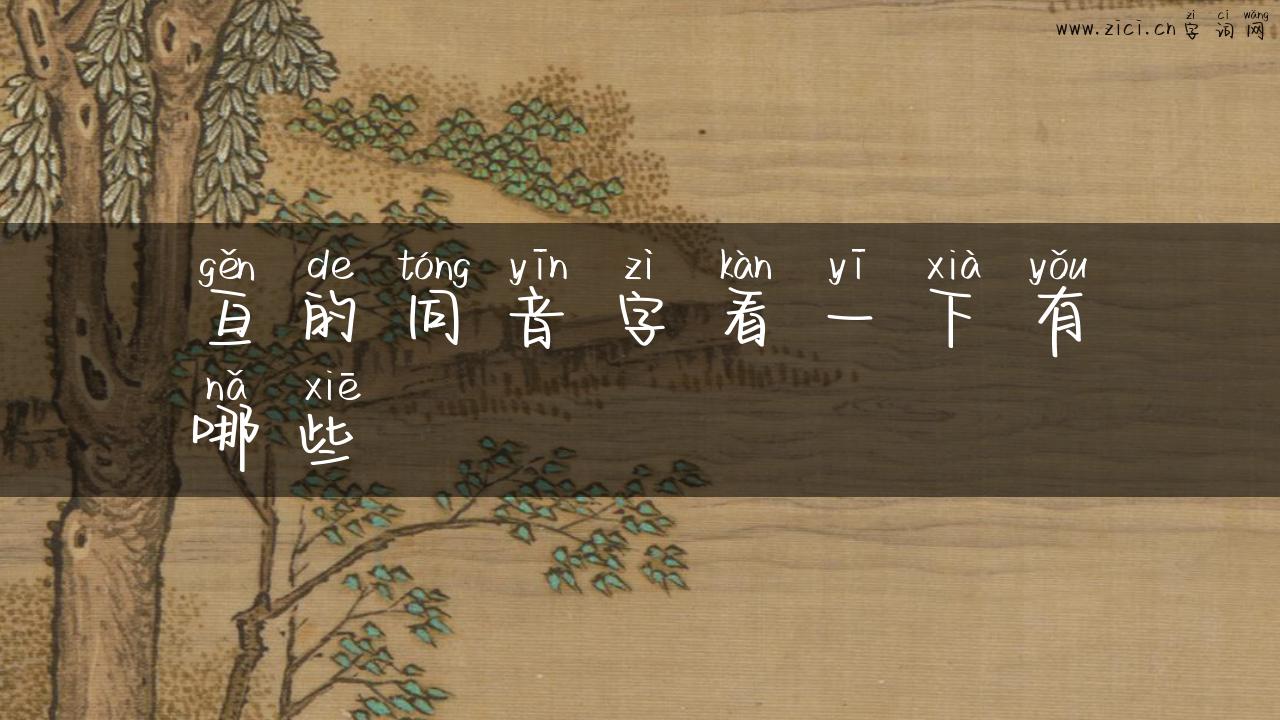 www.zici.cn zì cí wǎng
字词网
gěn de tóng yīn zì kàn yī xià yǒu
亘的同音字看一下有
nǎ xiē
哪些